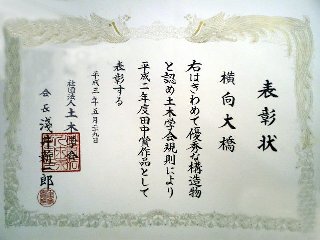 表彰状
横向大橋
右はきわめて優秀な構造物
と認め土木学会規則により
平成二年度田中賞作品として
表彰する
平成三年五月二九日
社団法人土木学会
会長 浅井新一郎